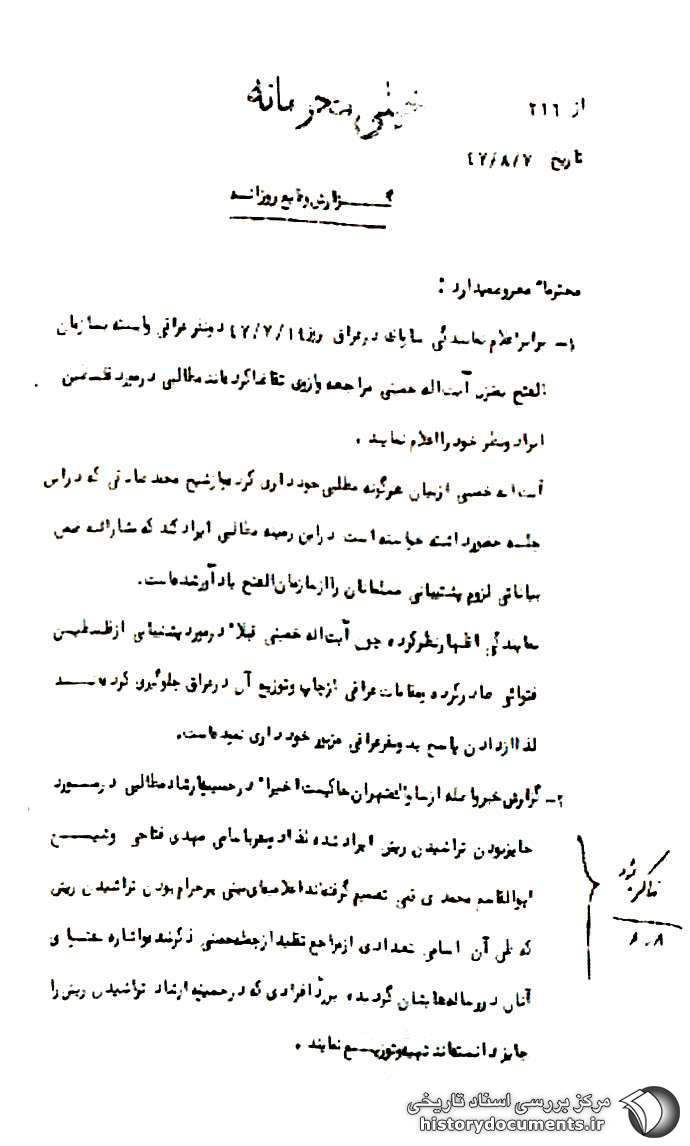 خیلی محرمانه
از ۲۱۶
تاریخ ۴۷/۸/۷
گزارش وقایع روزانه
محترما" معروضمیدارد :
۱- برابر اعلام نمایندگی ساواک درعراق روز ۴۷/۷/۱۹ دونفرعراقی وابسته بسازمان
الفتح بمنزل آیت اله خمینی مراجعه وازوی تقاضاکرده‌اند مطالبی درمورد فلسطین
ایراد ونظر خود را اعلام نمایند .
آیت اله خمینی ازبیان هرگونه مطلبی خودداری کرده وازشیخ محمد صادقی که دراین
جلسه حضورداشته خواسته است دراین زمینه مطالبی ایراد کند که مشارالیه ضمن
بیاناتی لزوم پشتیبانی مسلمانان را از سازمان الفتح یادآورشده‌است.
نمایندگی اظهارنظرکرده چون آیت اله خمینی قبلا" درمورد پشتیبانی ازفلسطین
فتوائی صادرکرده ومقامات عراقی ازچاپ وتوزیع آن درعراق جلوگیری کرده‌اند
لذا ازدادن پاسخ بدونفرعراقی مزبور خودداری نموده‌است.
۲- گزارش خبرواصله ازساواک تهران حاکیست اخیرا" درحسینیه ارشاد مطالبی درمورد
جایزبودن تراشیدن ریش ایراد شده لذا دونفر باسامی مهدی فتاحی وشیخ
ابوالقاسم محمدی قمی تصمیم گرفته‌اند اعلامیه‌ای مبنی برحرام بودن تراشیدن ریش
که طی آن اسامی تعدادی ازمراجع تقلید ازجمله خمینی ذکرشده واشاره بفتوای
آنان دررساله‌هایشان گردیده برد افرادی که درحسینیه ارشاد تراشیدن ریش را
جایز دانسته‌اند تهیه وتوزیع نمایند .
مذاکره شود
۸.۸
مرکز بررسی اسناد تاریخی
historydocuments.ir